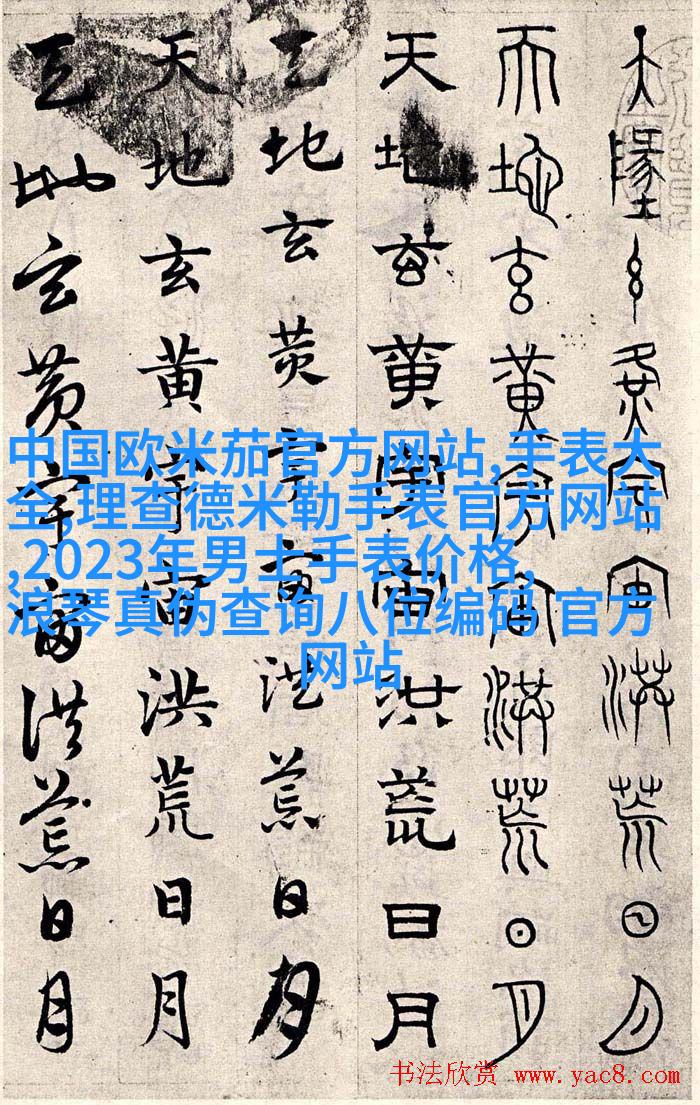 天地玄黄宇宙洪荒日月
天地玄黄宇宙洪荒日月
天地玄黄宇宙洪荒日月
天地玄黄宇宙洪荒日月
天地玄黄宇宙洪荒日月
天地玄黄宇宙洪荒日月
中国欧米茄官方网站,手表大
全,理查德米勒手表官方网站
,2023年男士手表价格,
浪琴真伪查询八位编码 官方
网站
书法欣赏 www.yac8.com